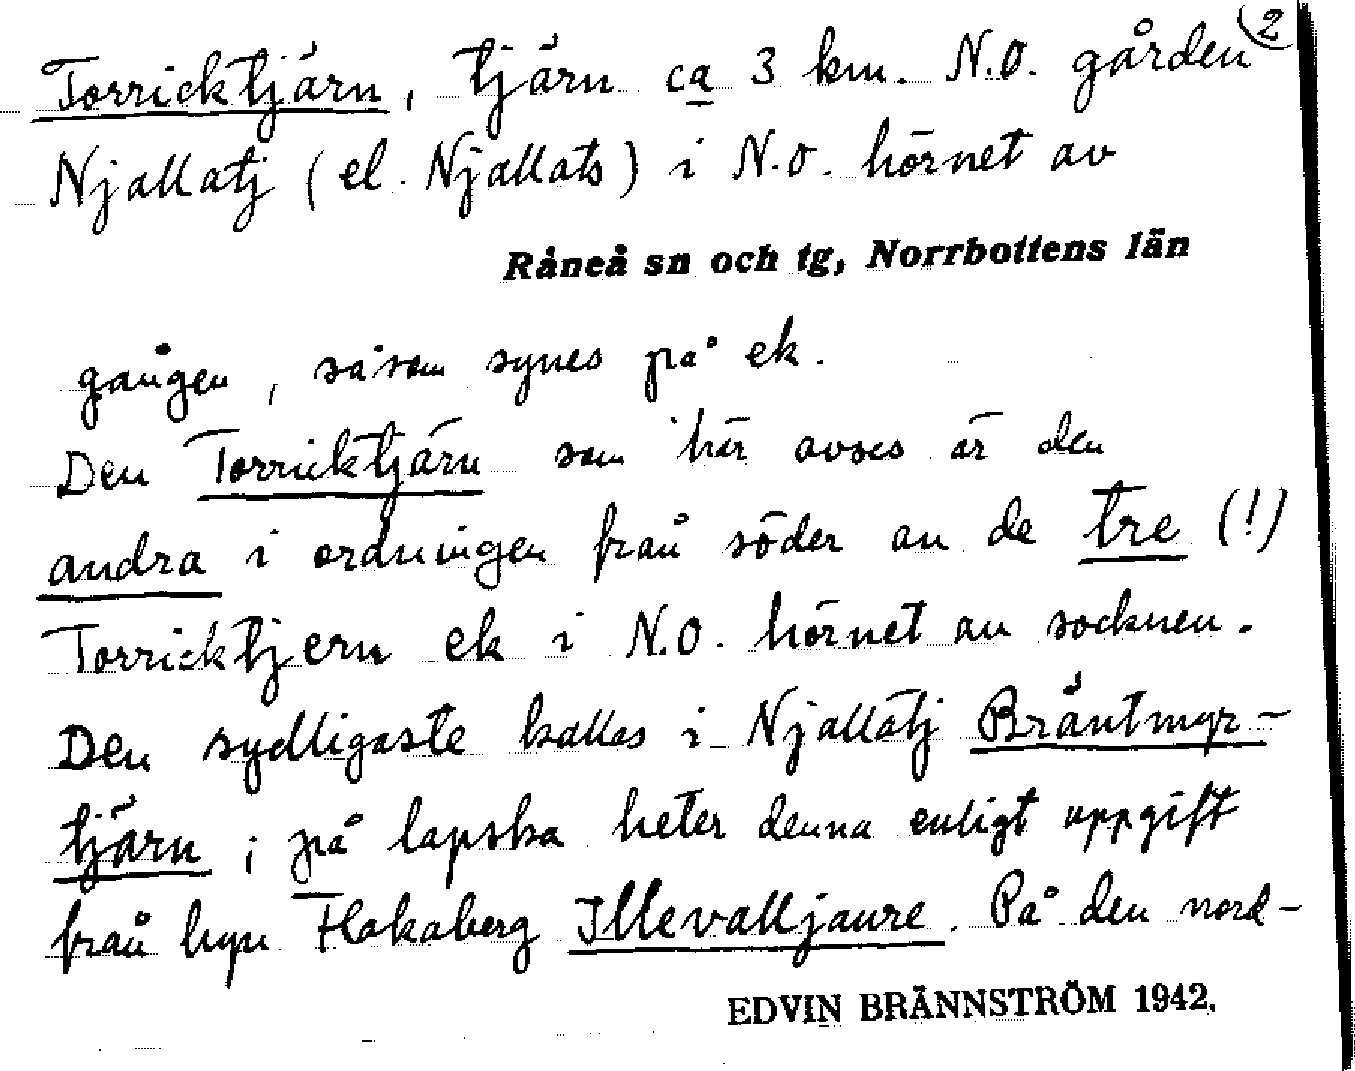 2
Torricktjärn, tjärn ca 3 km. N.O. gården
Njallatj (el. Njallats) i N.O. hörnet av
Råneå sn och tg, Norrbottens län
gången, såsom synes på ek.
Den Torricktjärn som här avses är den
andra i ordningen från söder av de tre (!)
Torricktjern ek i N.O. hörnet av socknen.
Den sydligaste kallas i Njallatj Bräntmyr-
tjärn; på lapska heter denna enligt uppgift
från byn Flakaberg Illevalljaure. På den nord-
EDVIN BRÄNNSTRÖM 1942.